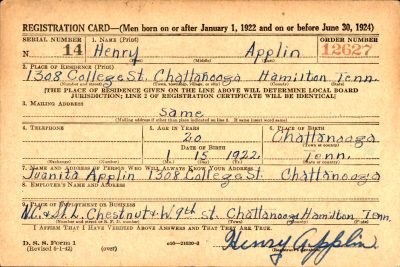 REGISTRATION CARD—(Men born on or after January 1, 1922 and on or before June 30, 1924)
SERIAL NUMBER 1. NAME (Print) ORDER NUMBER
N 14 Henry Applin 12627
(First) (Middle) (Last)
2. PLACE OF RESIDENCE (Print)
1308 College St. Chattanooga Hamilton Tenn.
(Number and street) (Town, township, village, or city) (County) (State)
[THE PLACE OF RESIDENCE GIVEN ON THE LINE ABOVE WILL DETERMINE LOCAL BOARD
JURISDICTION; LINE 2 OF REGISTRATION CERTIFICATE WILL BE IDENTICAL]
3. MAILING ADDRESS
Same
(Mailing address if other than place indicated on line 2. If same insert word same)
4. TELEPHONE 5. AGE IN YEARS 6. PLACE OF BIRTH
20 Chattanooga
DATE OF BIRTH (Town or county)
1 15 1922 Tenn.
(Exchange) (Number) (Mo.) (Day) (Yr.) (State or country)
7. NAME AND ADDRESS OF PERSON WHO WILL ALWAYS KNOW YOUR ADDRESS
Juanita Applin 1308 College St. Chattanooga
8. EMPLOYER'S NAME AND ADDRESS
9. PLACE OF EMPLOYMENT OR BUSINESS
N.C. & St. L. Chestnut & W. 9th St. Chattanooga, Hamilton, Tenn.
(Number and street or R. F. D. number) (Town) (County) (State)
I AFFIRM THAT I HAVE VERIFIED ABOVE ANSWERS AND THAT THEY ARE TRUE.
D. S. S. Form 1
(Revised 6-1-42) (over) Henry Applin
(Registrant's signature)